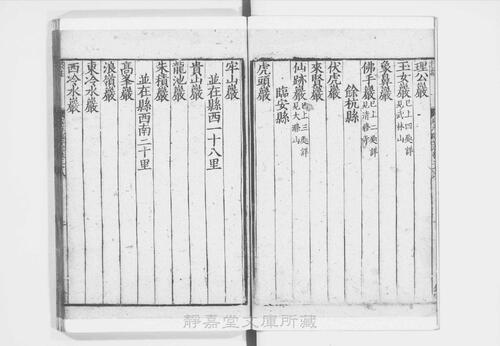 理公巖
玉女巖已上四巖詳見武林山
象鼻巖
佛手巖已上二巖詳見清修寺
餘杭縣
伏虎巖
來賢巖
仙跡巖已上三巖詳見大滌山
臨安縣
虎頭巖
牢山巖
並在縣西一十八里
貴山巖
龍池巖
朱積巖
並在縣西南二十里
高峯巖
浪濆巖
東冷水巖
西冷水巖
靜嘉堂文庫所藏